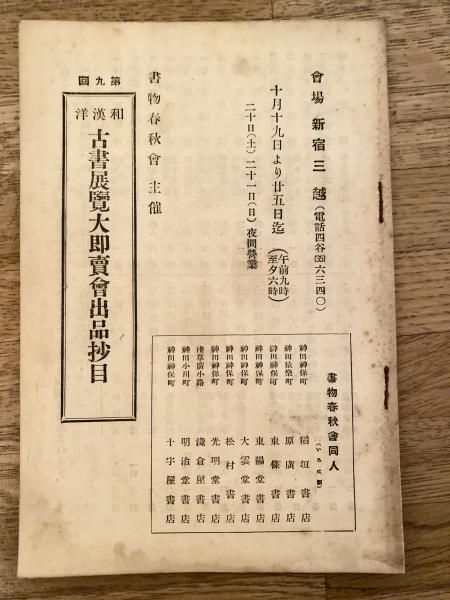 會場 新宿三越(電話四谷(35)六三四〇)
十月十九日より廿五日迄(午前九時至夕六時)
二十日(土)二十一日(日)夜間營業
書物春秋會 主催
第九回
和漢洋
古書展覽大即賣會出品抄目
書物春秋會同人
(いろは順)
神田神保町 稻垣書店
神田猿樂町 原廣書店
神田神保町 東條書店
神田神保町 東陽堂書店
神田神保町 大雲堂書店
神田神保町 松村書店
神田神保町 光明堂書店
淺草廣小路 淺倉屋書店
神田小川町 明治堂書店
神田神保町 十字屋書店